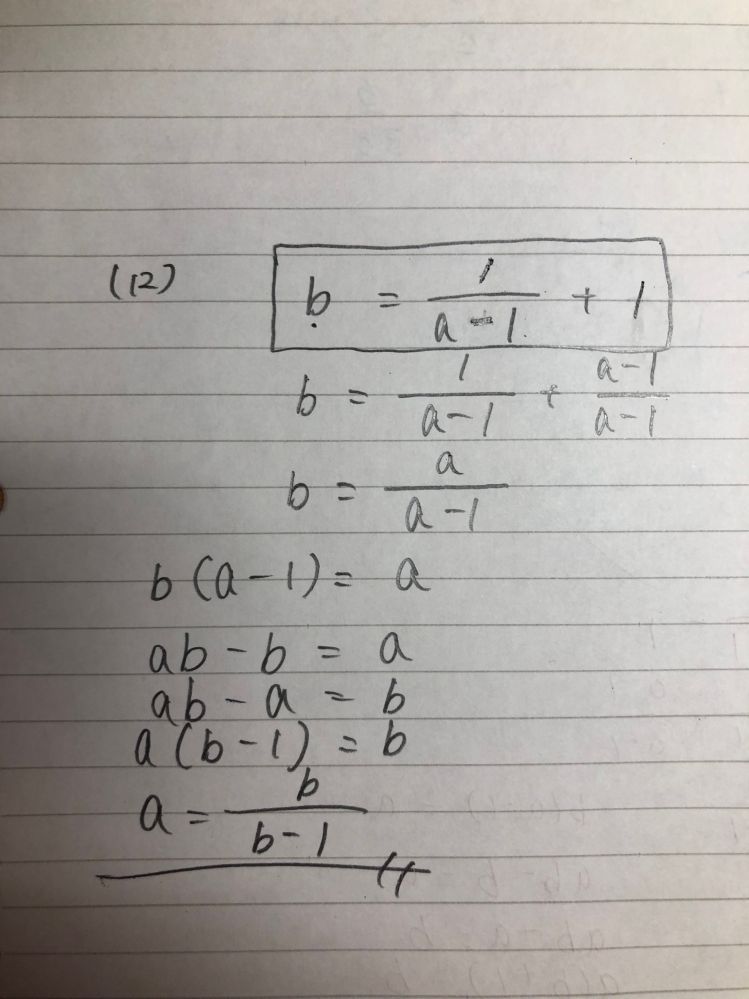 (12) b = 1/(a-1) + 1
b = 1/(a-1) + (a-1)/(a-1)
b = a/(a-1)
b(a-1) = a
ab-b = a
ab-a = b
a(b-1) = b
a = b/(b-1)